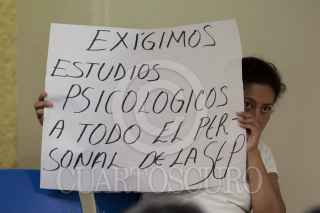 EXIGIMOS
ESTUDIOS
PSICOLOGICOS
A TODO EL PER-
SONAL DE LA SEP
CUARTOSCURO